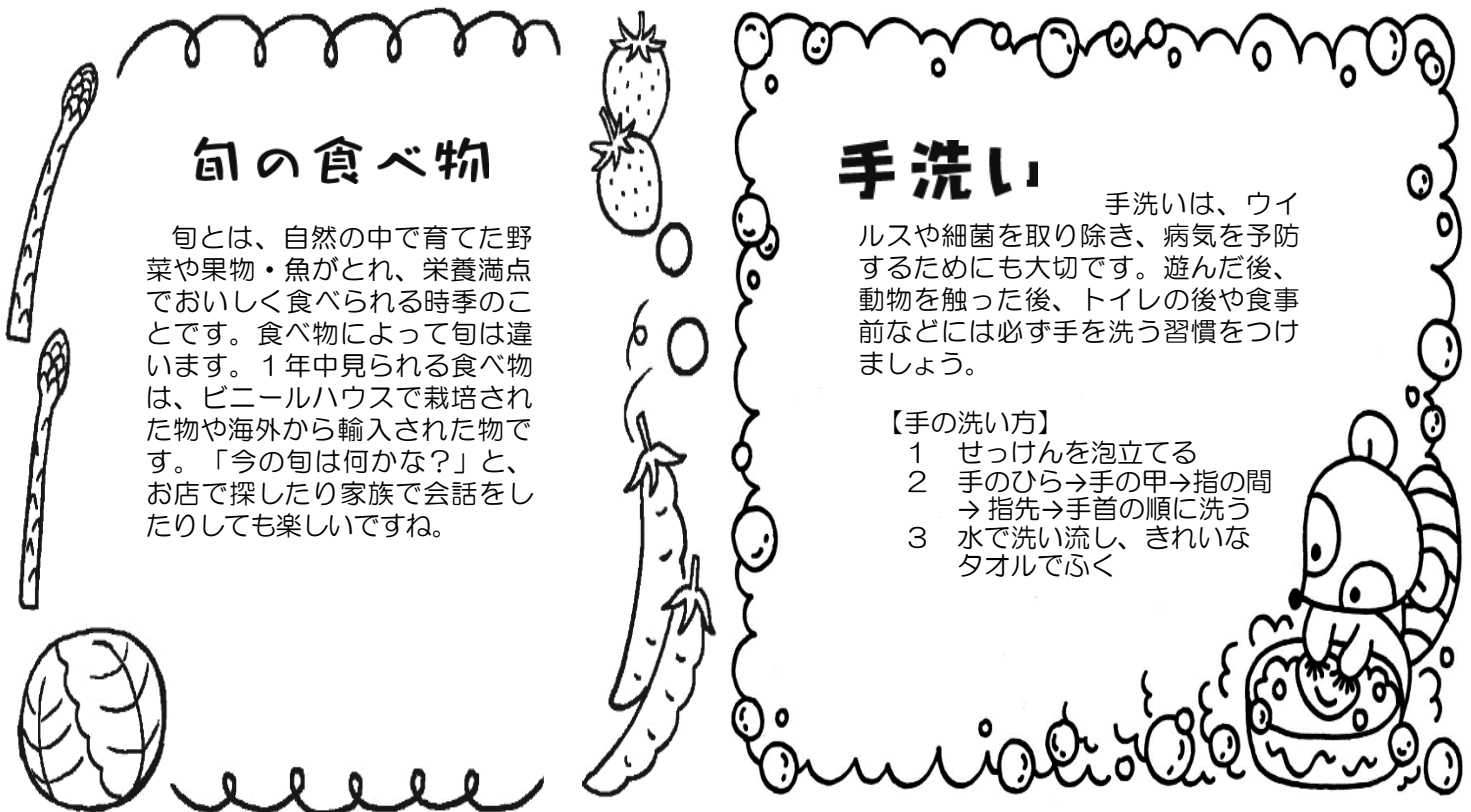 旬の食べ物
旬とは、自然の中で育てた野
菜や果物・魚がとれ、栄養満点
でおいしく食べられる時季のこ
とです。食べ物によって旬は違
います。１年中見られる食べ物
は、ビニールハウスで栽培され
た物や海外から輸入された物で
す。「今の旬は何かな？」と、
お店で探したり家族で会話をし
たりしても楽しいですね。
手洗い
手洗いは、ウイ
ルスや細菌を取り除き、病気を予防
するためにも大切です。遊んだ後、
動物を触った後、トイレの後や食事
前などには必ず手を洗う習慣をつけ
ましょう。
【手の洗い方】
１　せっけんを泡立てる
２　手のひら→手の甲→指の間
→ 指先→手首の順に洗う
３　水で洗い流し、きれいな
タオルでふく